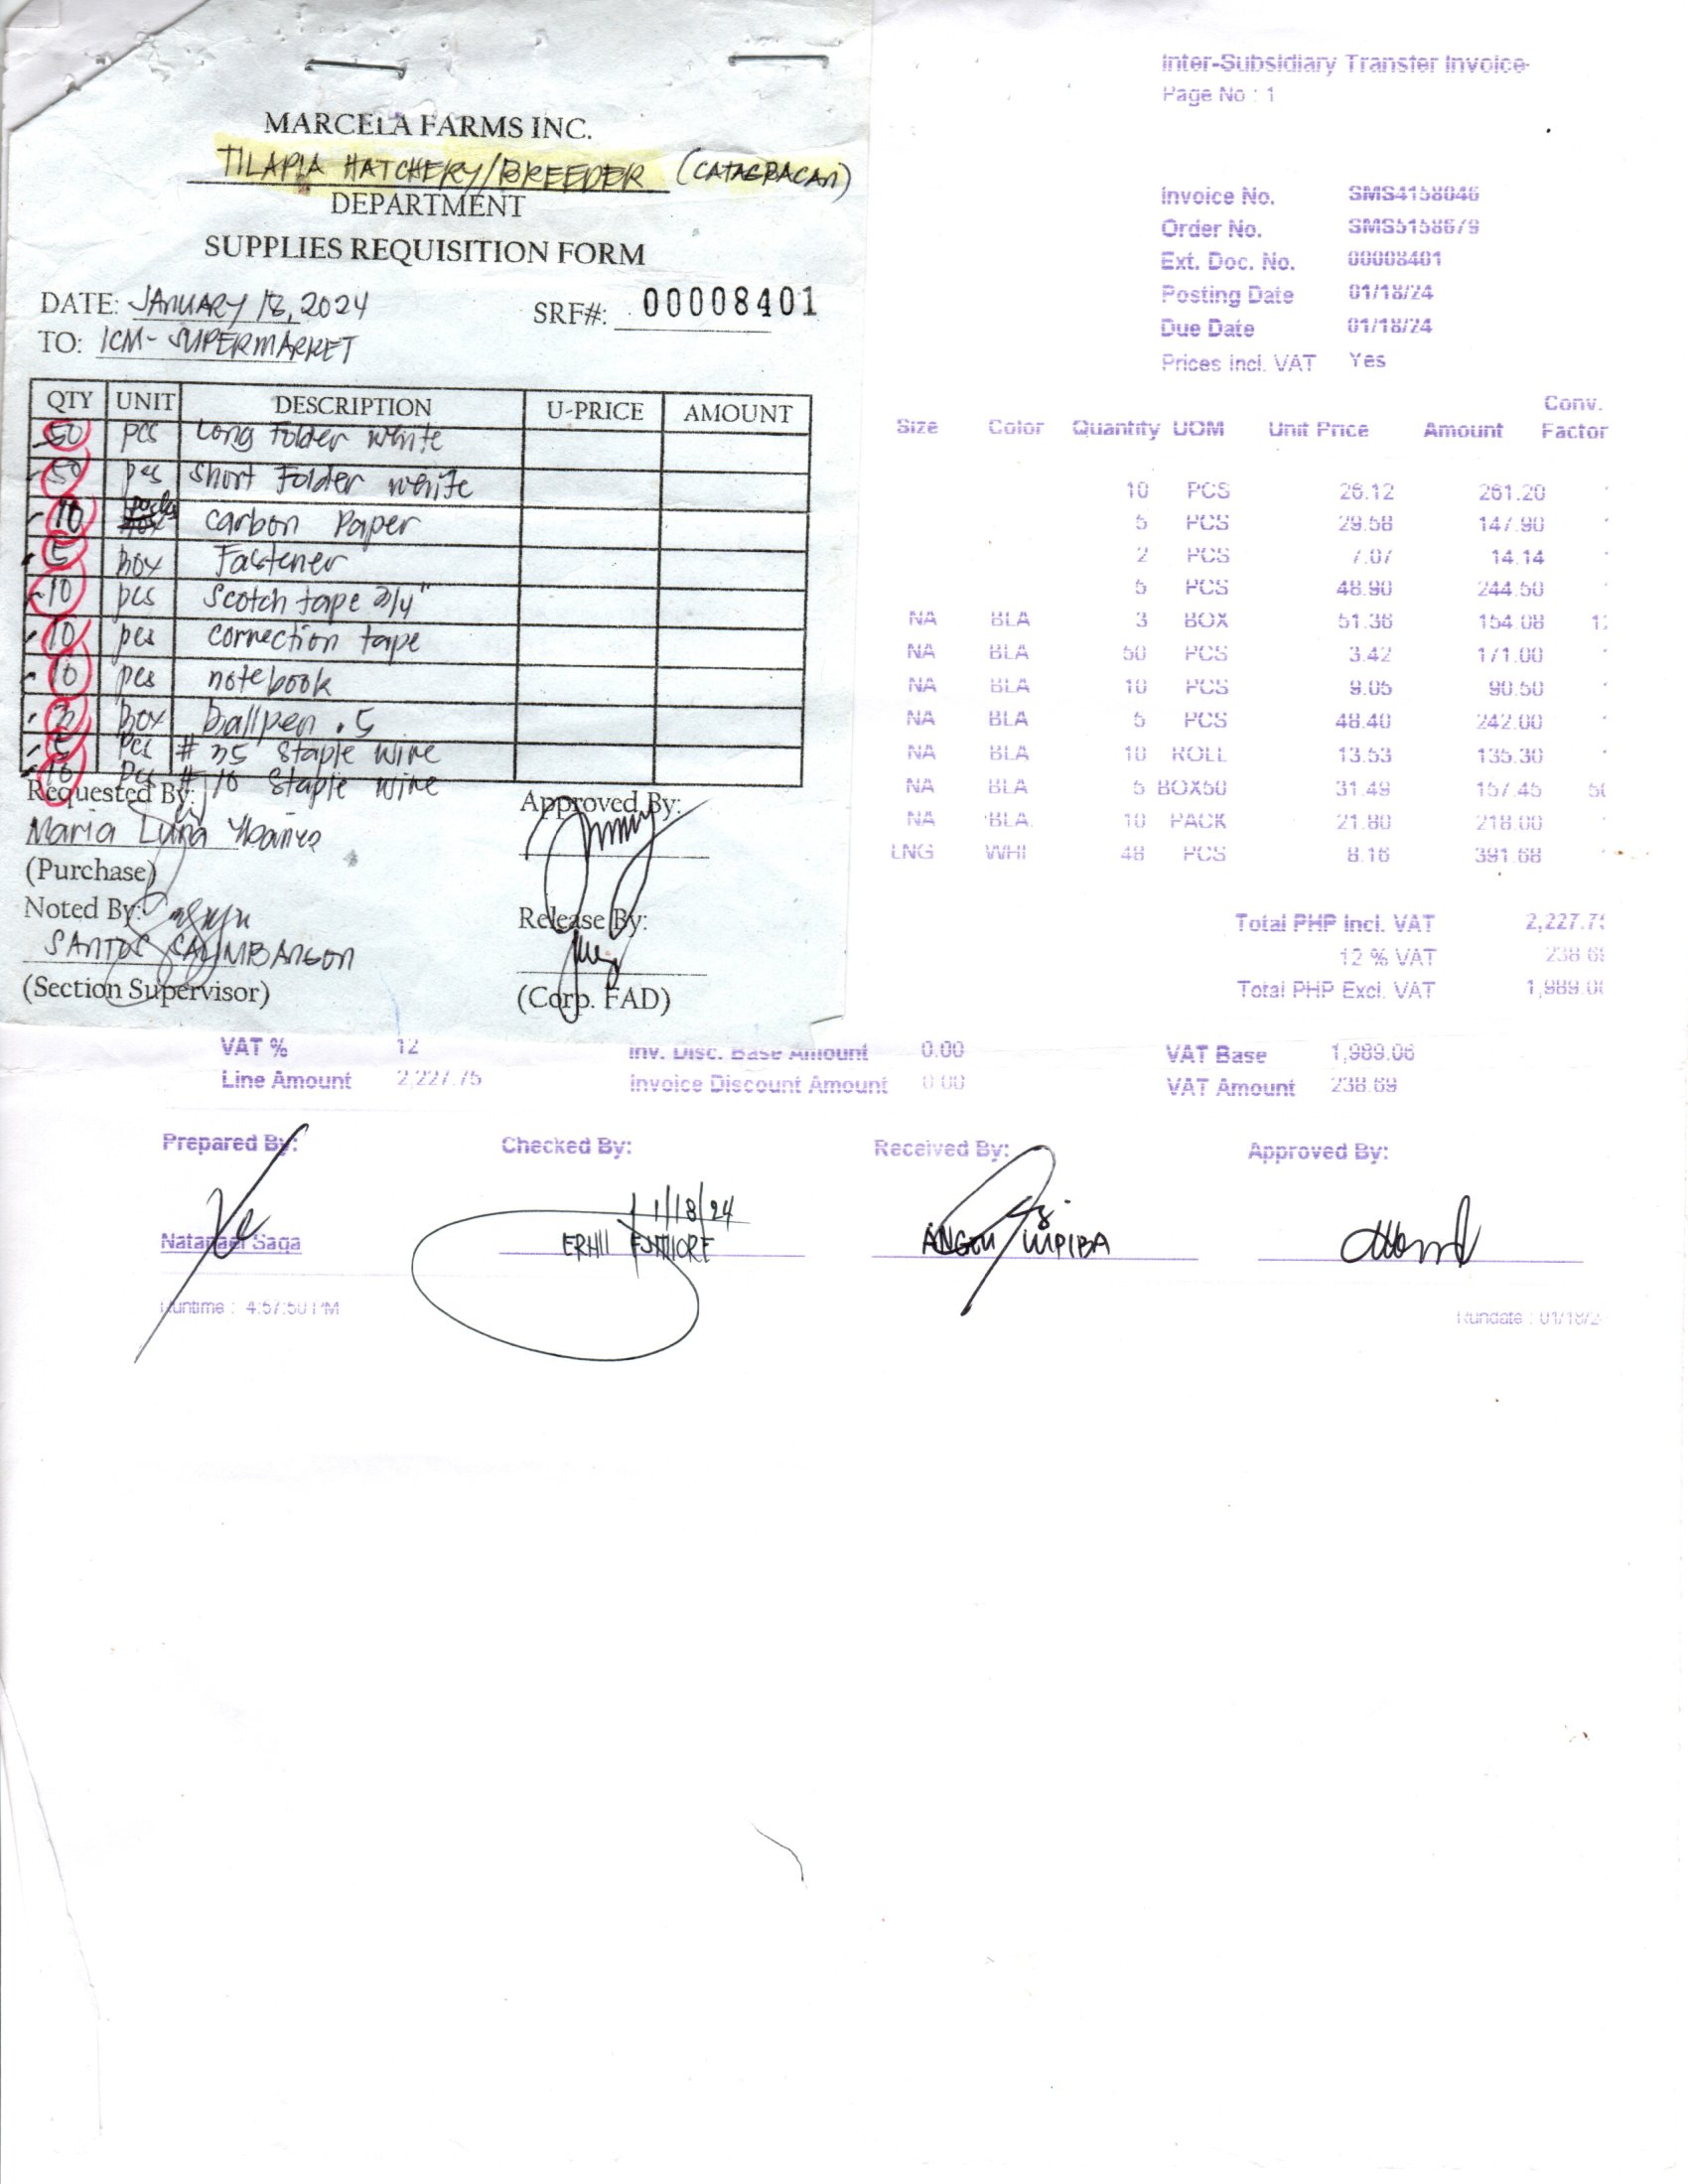 MARCELA FARMS INC.
TILAPIA HATCHERY/BREEDER (CATAGBACAN)
DEPARTMENT
SUPPLIES REQUISITION FORM
DATE: JANUARY 18, 2024 SRF#: 00008401
TO: ICM- SUPERMARKET
QTY UNIT DESCRIPTION U-PRICE AMOUNT
50 pcs Long Folder white
50 pcs Short Folder white
10 packs carbon Paper
5 Box Fastener
10 pcs Scotch tape 3/4"
10 pcs correction tape
10 pcs notebook
3 Box ballpen .5
5 pcs # 35 Staple wire
10 pcs # 10 Staple wire
Requested By: Approved By:
Maria Luna Ybanez
(Purchase)
Noted By: Release By:
SANTOS CALIMBANGON
(Section Supervisor) (Corp. FAD)
Inter-Subsidiary Transfer Invoice
Page No : 1
Invoice No. SMS4158046
Order No. SMS5158679
Ext. Doc. No. 00008401
Posting Date 01/18/24
Due Date 01/18/24
Prices incl. VAT Yes
Size Color Quantity UOM Unit Price Amount Conv. Factor
10 PCS 26.12 261.20
5 PCS 29.58 147.90
2 PCS 7.07 14.14
5 PCS 48.90 244.50
NA BLA 3 BOX 51.36 154.08
NA BLA 50 PCS 3.42 171.00
NA BLA 10 PCS 9.05 90.50
NA BLA 5 PCS 48.40 242.00
NA BLA 10 ROLL 13.53 135.30
NA BLA 5 BOX50 31.49 157.45
NA BLA. 10 PACK 21.80 218.00
LNG WHI 48 PCS 8.16 391.68
Total PHP Incl. VAT 2,227.75
12 % VAT 238.69
Total PHP Excl. VAT 1,989.06
VAT % 12 Inv. Disc. Base Amount 0.00 VAT Base 1,989.06
Line Amount 2,227.75 Invoice Discount Amount 0.00 VAT Amount 238.69
Prepared By: Checked By: Received By: Approved By:
1/18/24
Natanael Saga
Runtime : 4:57:50 PM Rundate : 01/18/2